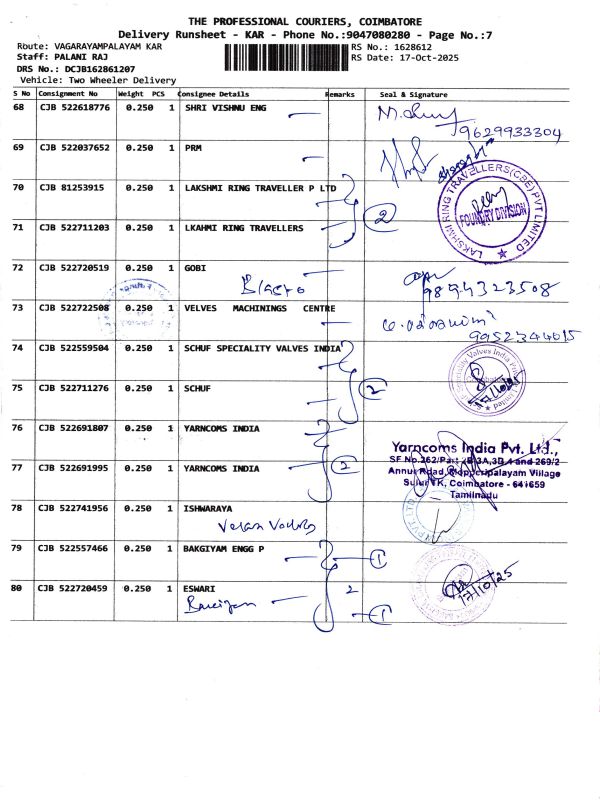 THE PROFESSIONAL COURIERS, COIMBATORE
Delivery Runsheet - KAR - Phone No.:9047080280 - Page No.:7
Route: VAGARAYAMPALAYAM KAR RS No.: 1628612
Staff: PALANI RAJ RS Date: 17-Oct-2025
DRS No.: DCJB162861207
Vehicle: Two Wheeler Delivery
S No Consignment No Weight PCS Consignee Details Remarks Seal & Signature
68 CJB 522618776 0.250 1 SHRI VISHNU ENG
9629933304
69 CJB 522037652 0.250 1 PRM
70 CJB 81253915 0.250 1 LAKSHMI RING TRAVELLER P LTD
2
LAKSHMI RING TRAVELLERS(CBE) PVT LIMITED
FOUNDRY DIVISION
71 CJB 522711203 0.250 1 LKAHMI RING TRAVELLERS
72 CJB 522720519 0.250 1 GOBI
9894323508
73 CJB 522722508 0.250 1 VELVES MACHININGS CENTRE
9952344015
74 CJB 522559504 0.250 1 SCHUF SPECIALITY VALVES INDIA
2
Speciality Valves India Private Limited
75 CJB 522711276 0.250 1 SCHUF
76 CJB 522691807 0.250 1 YARNCOMS INDIA
Yarncoms India Pvt. Ltd.,
SF No.262/Part 2B,3A,3B,4 and 269/2
77 CJB 522691995 0.250 1 YARNCOMS INDIA
2
Annur Road, Mopperipalayam Village
Sulur TK, Coimbatore - 641659
Tamilnadu
78 CJB 522741956 0.250 1 ISHWARAYA
79 CJB 522557466 0.250 1 BAKGIYAM ENGG P
1
80 CJB 522720459 0.250 1 ESWARI 2
17/10/25
1